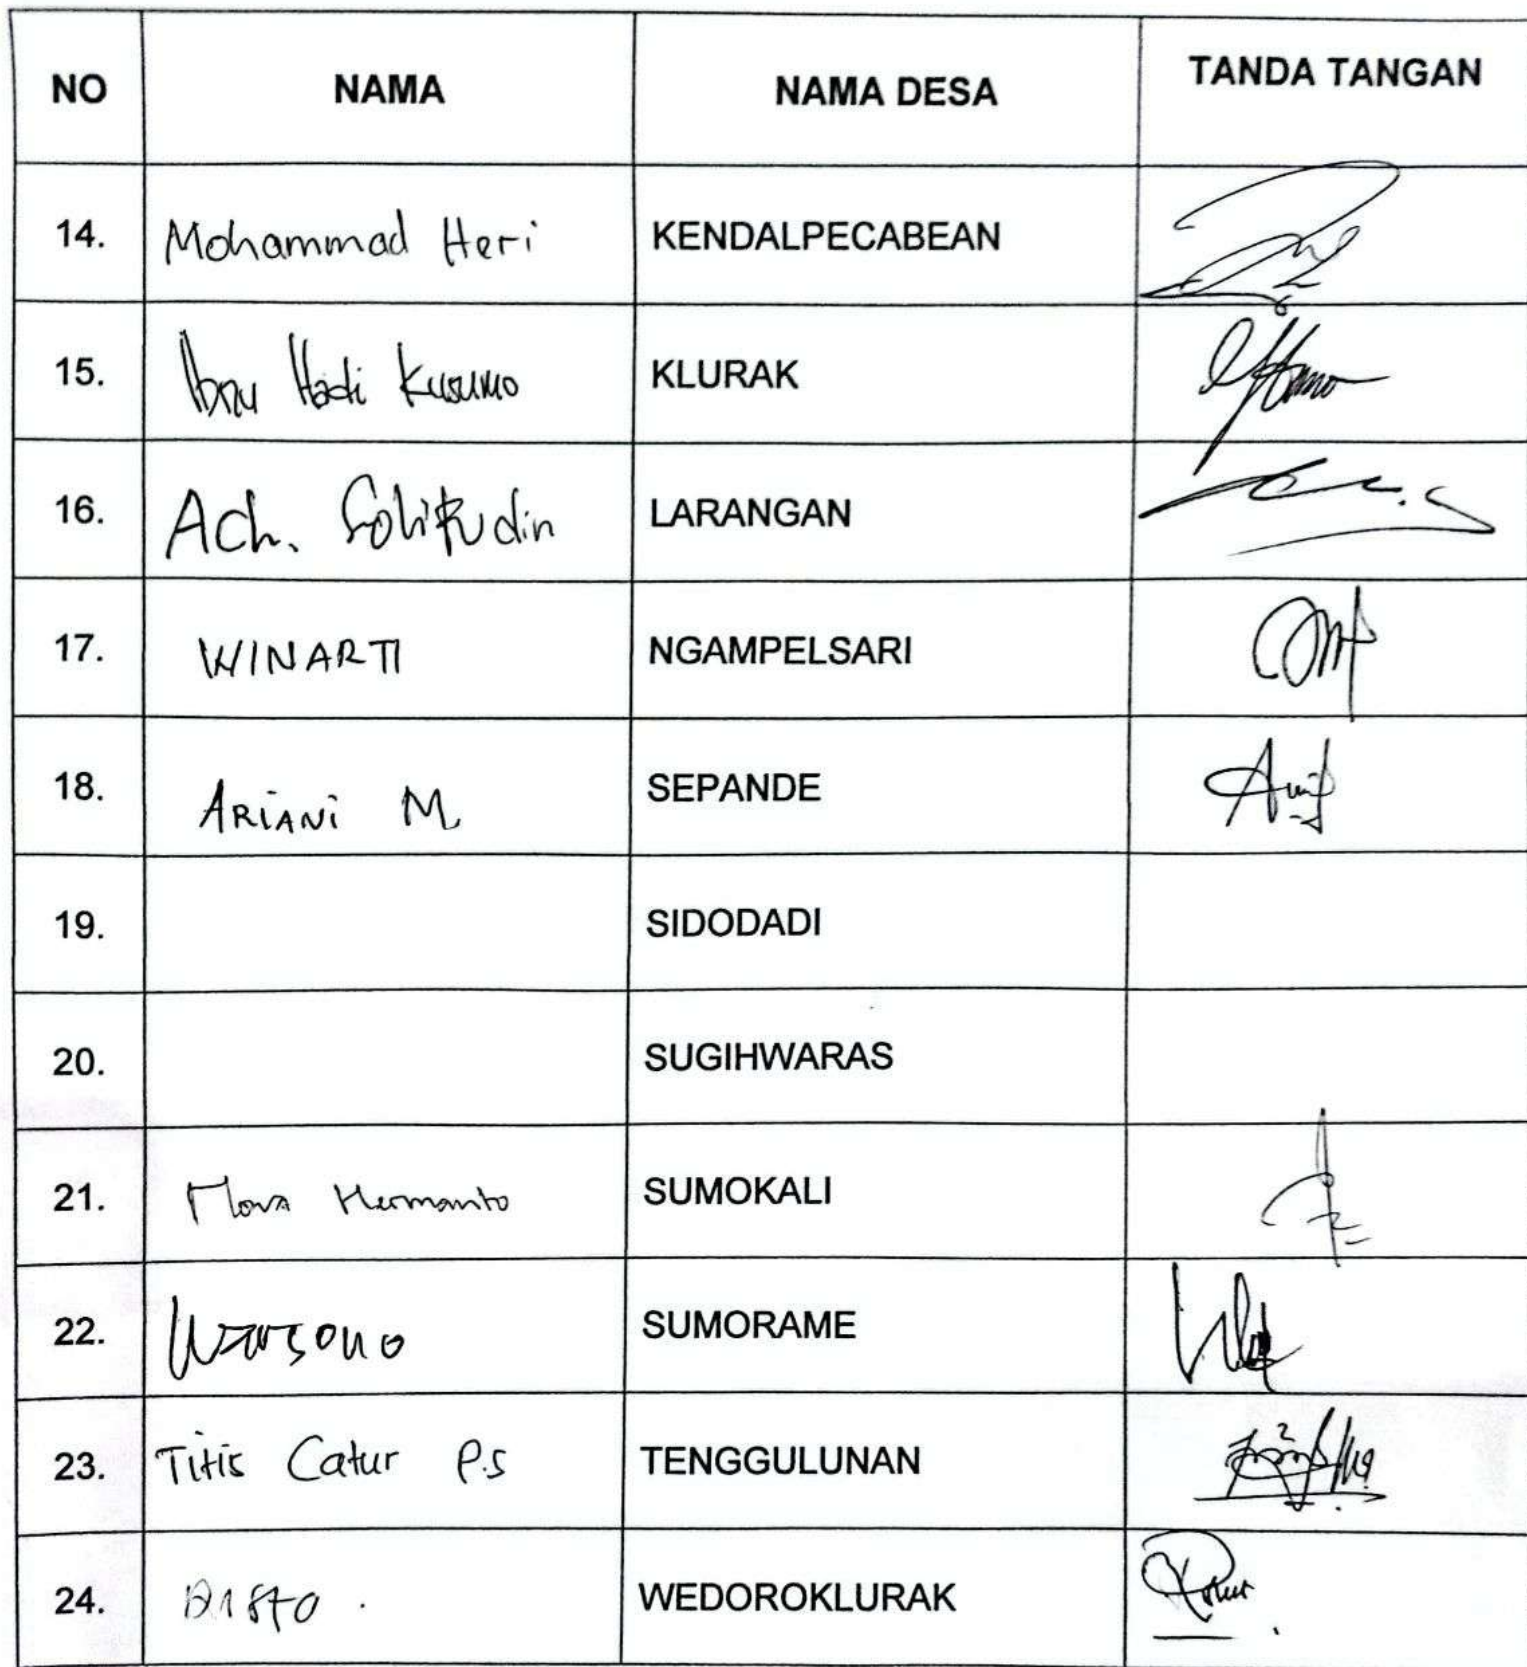 NO NAMA NAMA DESA TANDA TANGAN
14. Mohammad Heri KENDALPECABEAN
15. Ibnu Hadi Kusumo KLURAK
16. Ach. Solikudin LARANGAN
17. WINARTI NGAMPELSARI
18. ARiANi M SEPANDE
19. SIDODADI
20. SUGIHWARAS
21. Hermanto SUMOKALI
22. SUMORAME
23. Titis Catur P.S TENGGULUNAN
24. WEDOROKLURAK